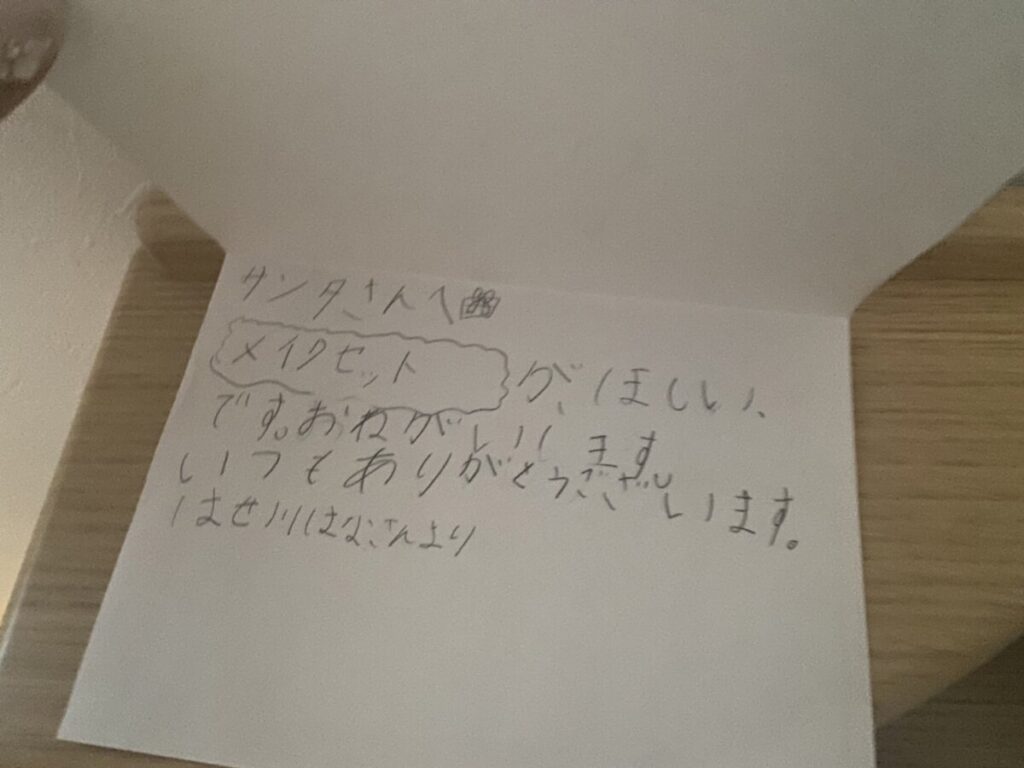 サンタさんへ
メイクセット が、ほしい、
です。おねがいします
いつもありがとうございます。
はせ川はなさんより